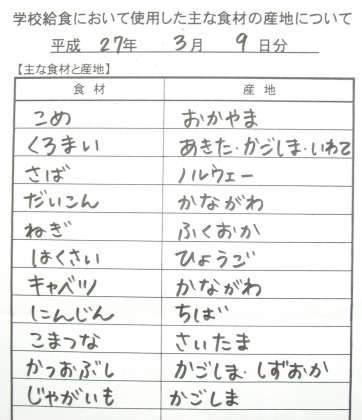 学校給食において使用した主な食材の産地について
平成 27年 3月 9日分
【主な食材と産地】
食材 産地
こめ おかやま
くろまい あきた・かごしま・いわて
さば ノルウェー
だいこん かながわ
ねぎ ふくおか
はくさい ひょうご
キャベツ かながわ
にんじん ちば
こまつな さいたま
かつおぶし かごしま・しずおか
じゃがいも かごしま